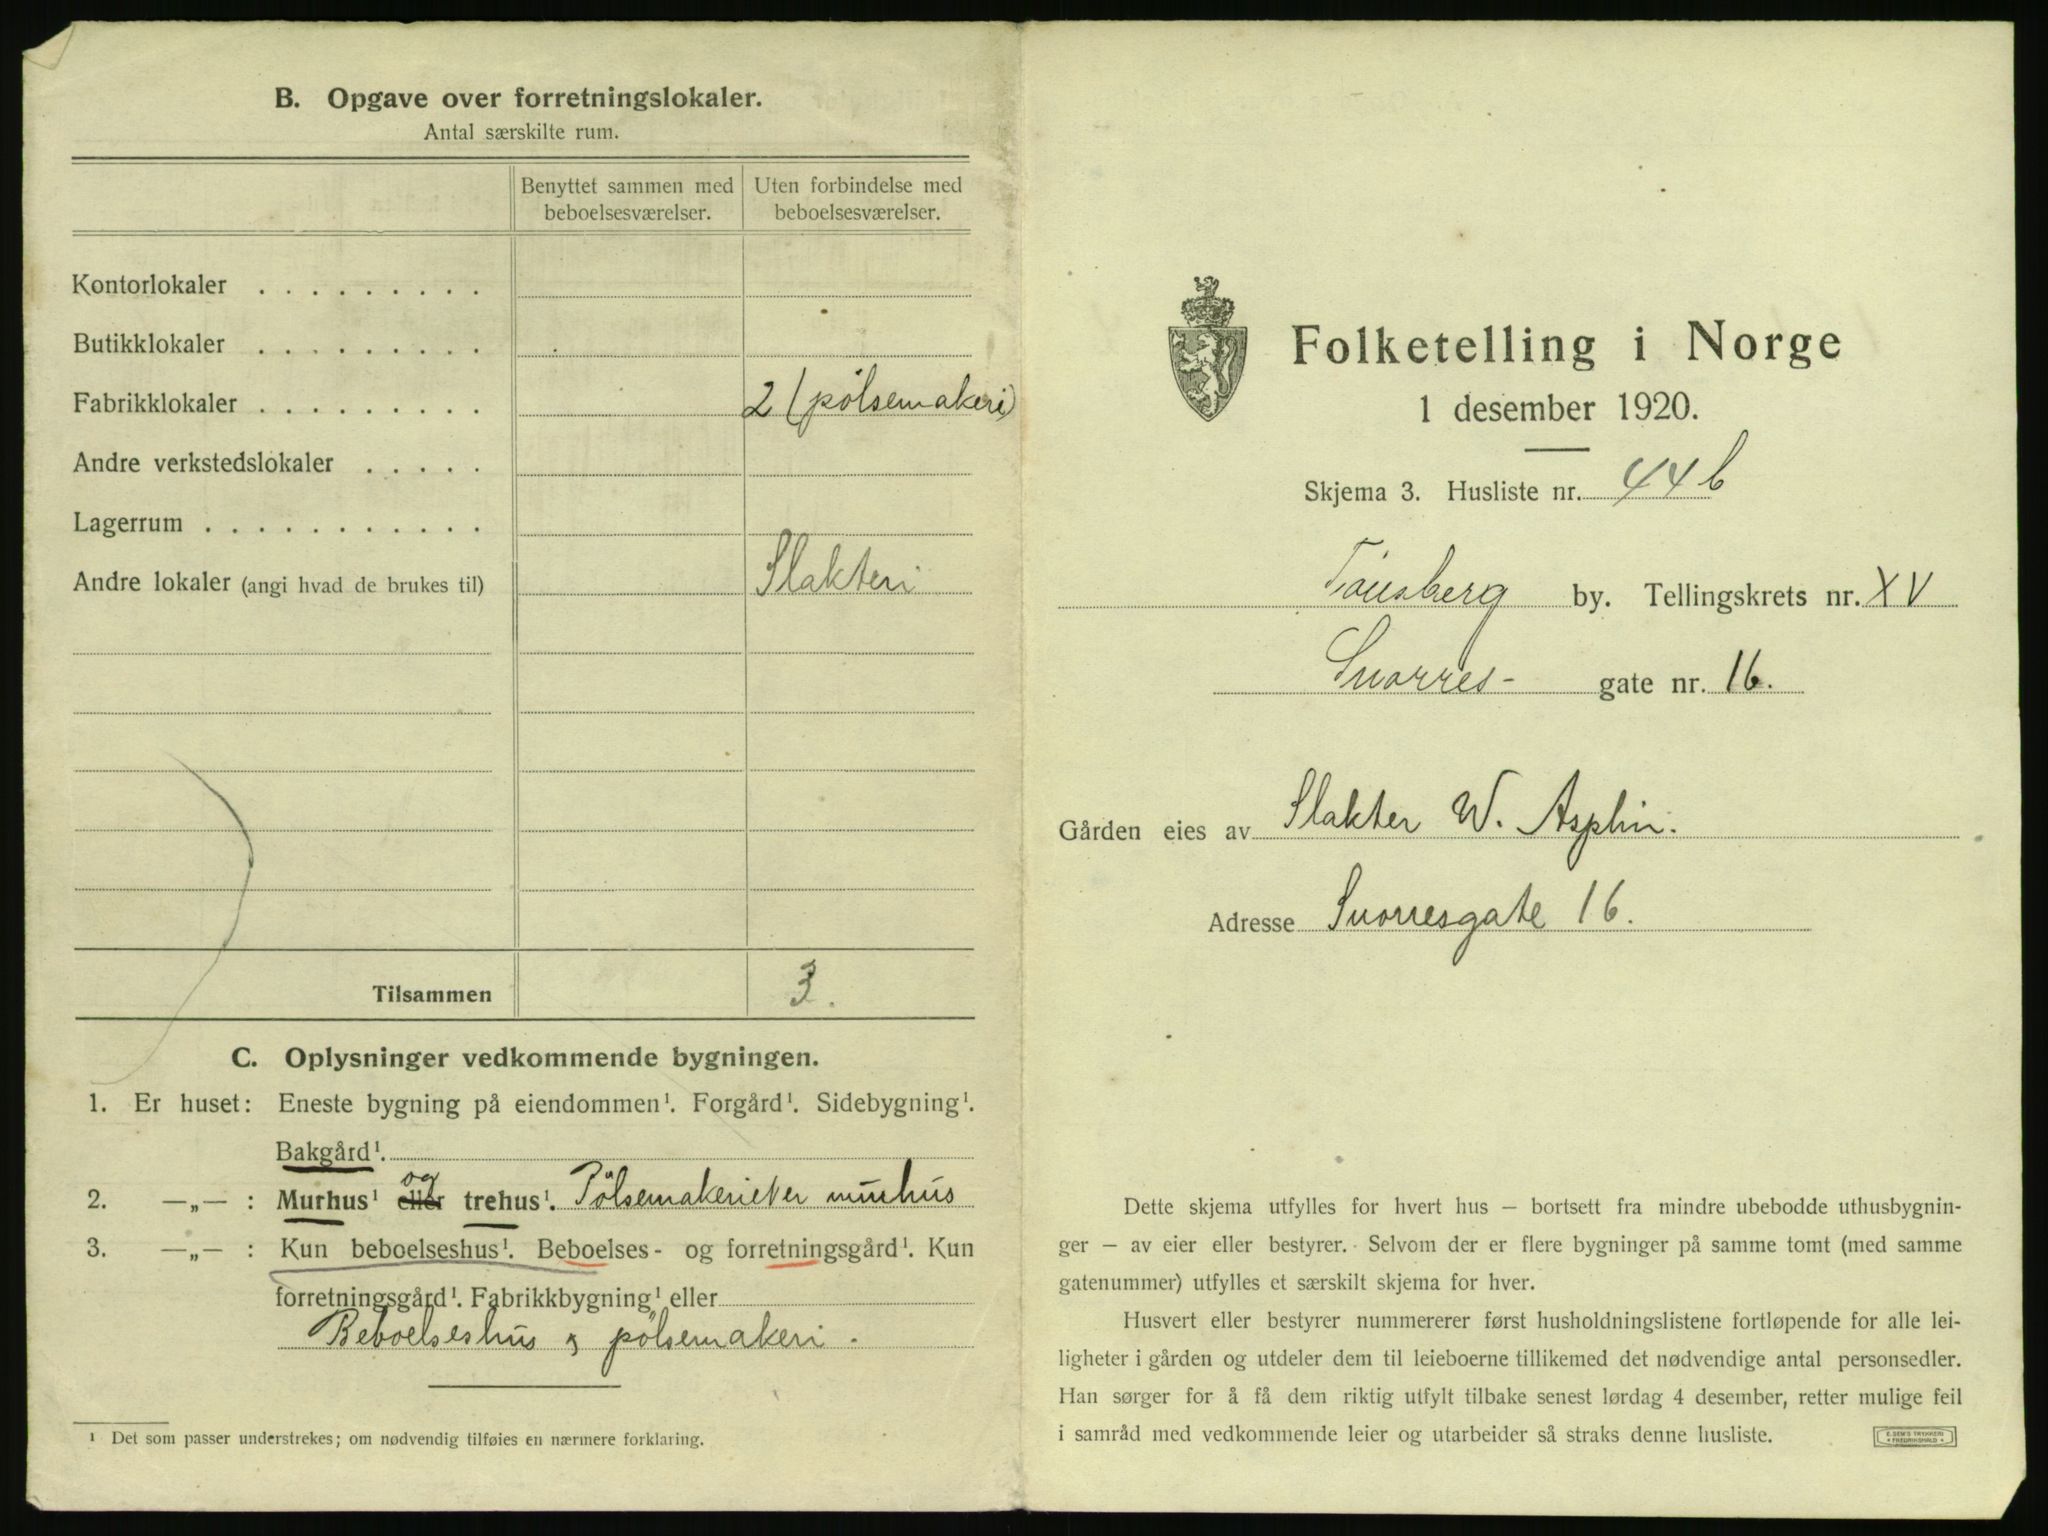 B. Opgave over forretningslokaler.
Antal særskilte rum.
Benyttet sammen med beboelsesværelser.
Uten forbindelse med beboelsesværelser.
Kontorlokaler . . . . . . . . .
Butikklokaler . . . . . . . . .
Fabrikklokaler . . . . . . . . . 2 (pølsemakeri)
Andre verkstedslokaler . . . . .
Lagerrum . . . . . . . . . . .
Andre lokaler (angi hvad de brukes til) Slakteri
Tilsammen 3.
C. Oplysninger vedkommende bygningen.
1. Er huset: Eneste bygning på eiendommen¹. Forgård¹. Sidebygning¹.
Bakgård¹.
og
2. —„— : Murhus¹ eller trehus¹. Pølsemakeriet er murhus
3. —„— : Kun beboelseshus¹. Beboelses- og forretningsgård¹. Kun
forretningsgård¹. Fabrikkbygning¹ eller
Beboelseshus og pølsemakeri.
¹ Det som passer understrekes; om nødvendig tilføies en nærmere forklaring.
Folketelling i Norge
1 desember 1920.
Skjema 3. Husliste nr. 44b
Tønsberg by. Tellingskrets nr. XV
Snorres- gate nr. 16.
Gården eies av Slakter W. Asplin.
Adresse Snorresgate 16.
Dette skjema utfylles for hvert hus – bortsett fra mindre ubebodde uthusbygnin-
ger – av eier eller bestyrer. Selvom der er flere bygninger på samme tomt (med samme
gatenummer) utfylles et særskilt skjema for hver.
Husvert eller bestyrer nummererer først husholdningslistene fortløpende for alle lei-
ligheter i gården og utdeler dem til leieboerne tillikemed det nødvendige antal personsedler.
Han sørger for å få dem riktig utfylt tilbake senest lørdag 4 desember, retter mulige feil
i samråd med vedkommende leier og utarbeider så straks denne husliste.
E. SEM'S TRYKKERI
FREDRIKSHALD